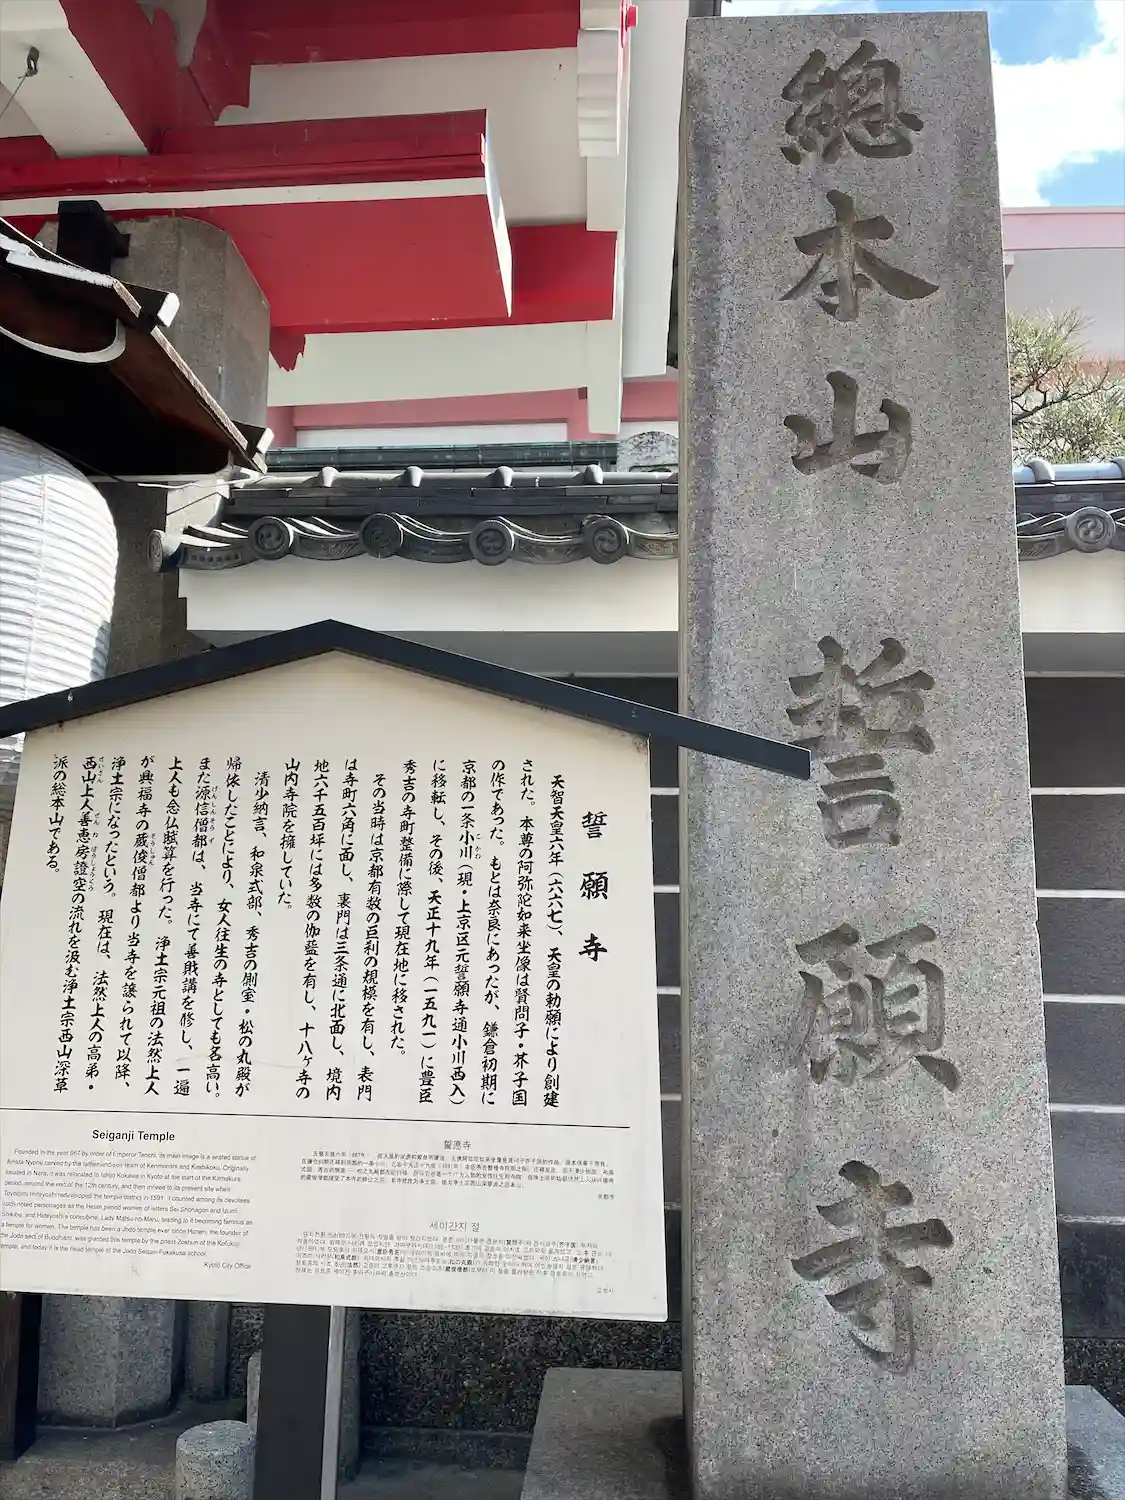 總本山 誓願寺
誓願寺
天智天皇六年（六六七）、天皇の勅願により創建
された。本尊の阿弥陀如来坐像は賢問子・芥子国
の作であった。もとは奈良にあったが、鎌倉初期に
京都の一条小川（現・上京区元誓願寺通小川西入）
に移転し、その後、天正十九年（一五九一）に豊臣
秀吉の寺町整備に際して現在地に移された。
その当時は京都有数の巨刹の規模を有し、表門
は寺町六角に面し、裏門は三条通に北面し、境内
地六千五百坪には多数の伽藍を有し、十八ヶ寺の
山内寺院を擁していた。
清少納言、和泉式部、秀吉の側室・松の丸殿が
帰依したことにより、女人往生の寺としても名高い。
また源信僧都は、当寺にて善財講を修し、一遍
上人も念仏賦算を行った。浄土宗元祖の法然上人
が興福寺の蔵俊僧都より当寺を譲られて以降、
浄土宗になったという。現在は、法然上人の高弟・
西山上人善恵房證空の流れを汲む浄土宗西山深草
派の総本山である。
Seiganji Temple
Founded in the year 667 by order of Emperor Tenchi, its main image is a seated statue of
Amida Nyorai carved by the father-and-son team of Kenmonshi and Keshikoku. Originally
located in Nara, it was relocated to Ichijo Kokawa in Kyoto at the start of the Kamakura
period, around the end of the 12th century, and then moved to its present site when
Toyotomi Hideyoshi redeveloped the temple district in 1591. It counted among its devotees
such noted personages as the Heian period women of letters Sei Shonagon and Izumi
Shikibu, and Hideyoshi's concubine, Lady Matsu-no-Maru, leading to it becoming famous as
a temple for women. The temple has been a Jodo temple ever since Honen, the founder of
the Jodo sect of Buddhism, was granted this temple by the priest Zoshun of the Kofukuji
temple, and today it is the head temple of the Jodo Seizan-Fukakusa school.
Kyoto City Office
세이간지 절